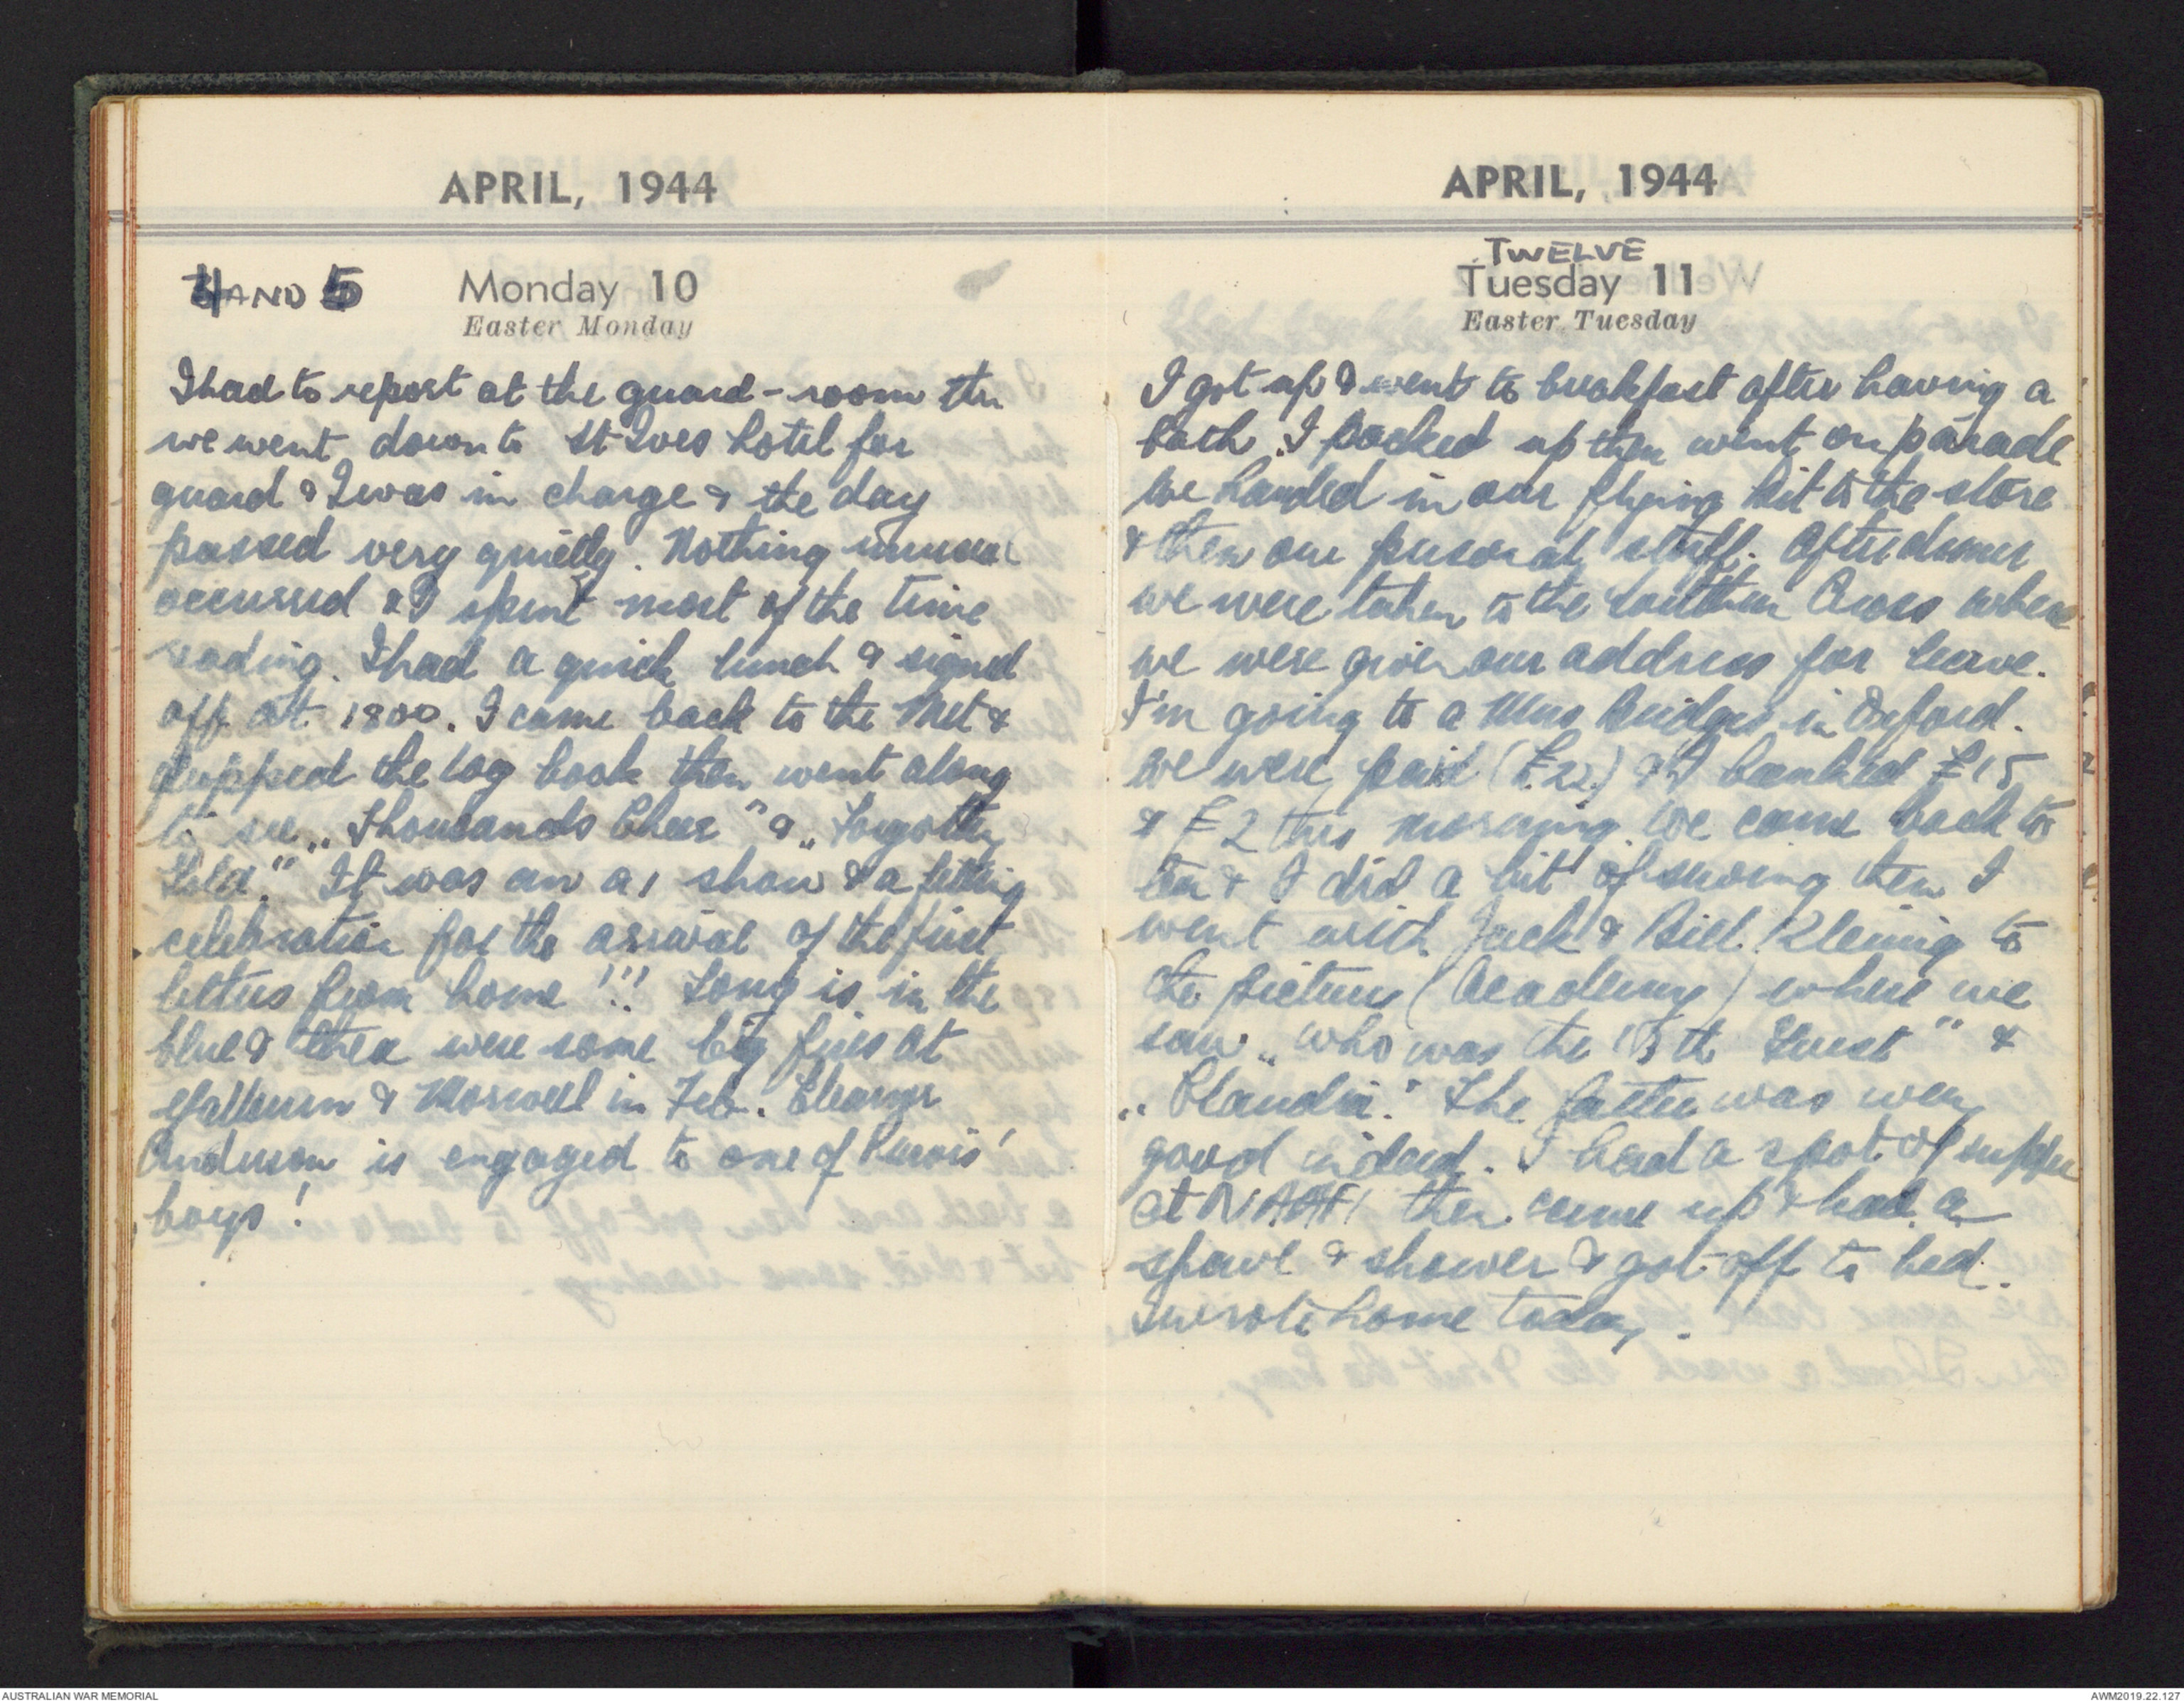 APRIL, 1944
4 AND 5 Monday 10
Easter Monday
I had to report at the guard-room then
we went down to St Ives hotel for
guard & I was in charge & the day
passed very quietly. Nothing unusual
occurred & I spent most of the time
reading. I had a quick lunch & signed
off at 1800. I came back to the Met &
the log book then went along
to see "Thousands Cheer" & "Forgotten
It was an a1 show & a fitting
celebration for the arrival of the first
letters from home!!! Long is in the
blue & there were some big fires at
Yallourn & Morwell in Feb. Eleanor
Anderson is engaged to one of Purvis'
boys!
APRIL, 1944
TWELVE
Tuesday 11
Easter Tuesday
I got up & went to breakfast after having a
bath. I packed up then went on parade
We handed in our flying kit to the store
& then our personal stuff. After dinner
we were taken to the Southern Cross where
we were given our address for leave.
I'm going to a Mrs Bridges in Oxford.
We were paid (£22) & I banked £15
& £2 this morning. We came back to
tea & I did a bit of sewing then I
went with Jack & Bill Kleinig to
the pictures (Academy) where we
saw "Who was the 13th Guest" &
"Claudia." The latter was very
good indeed. I had a spot of supper
at NAAFI then came up & had a
shave & shower & got off to bed.
I wrote home today.
AUSTRALIAN WAR MEMORIAL
AWM2019.22.127